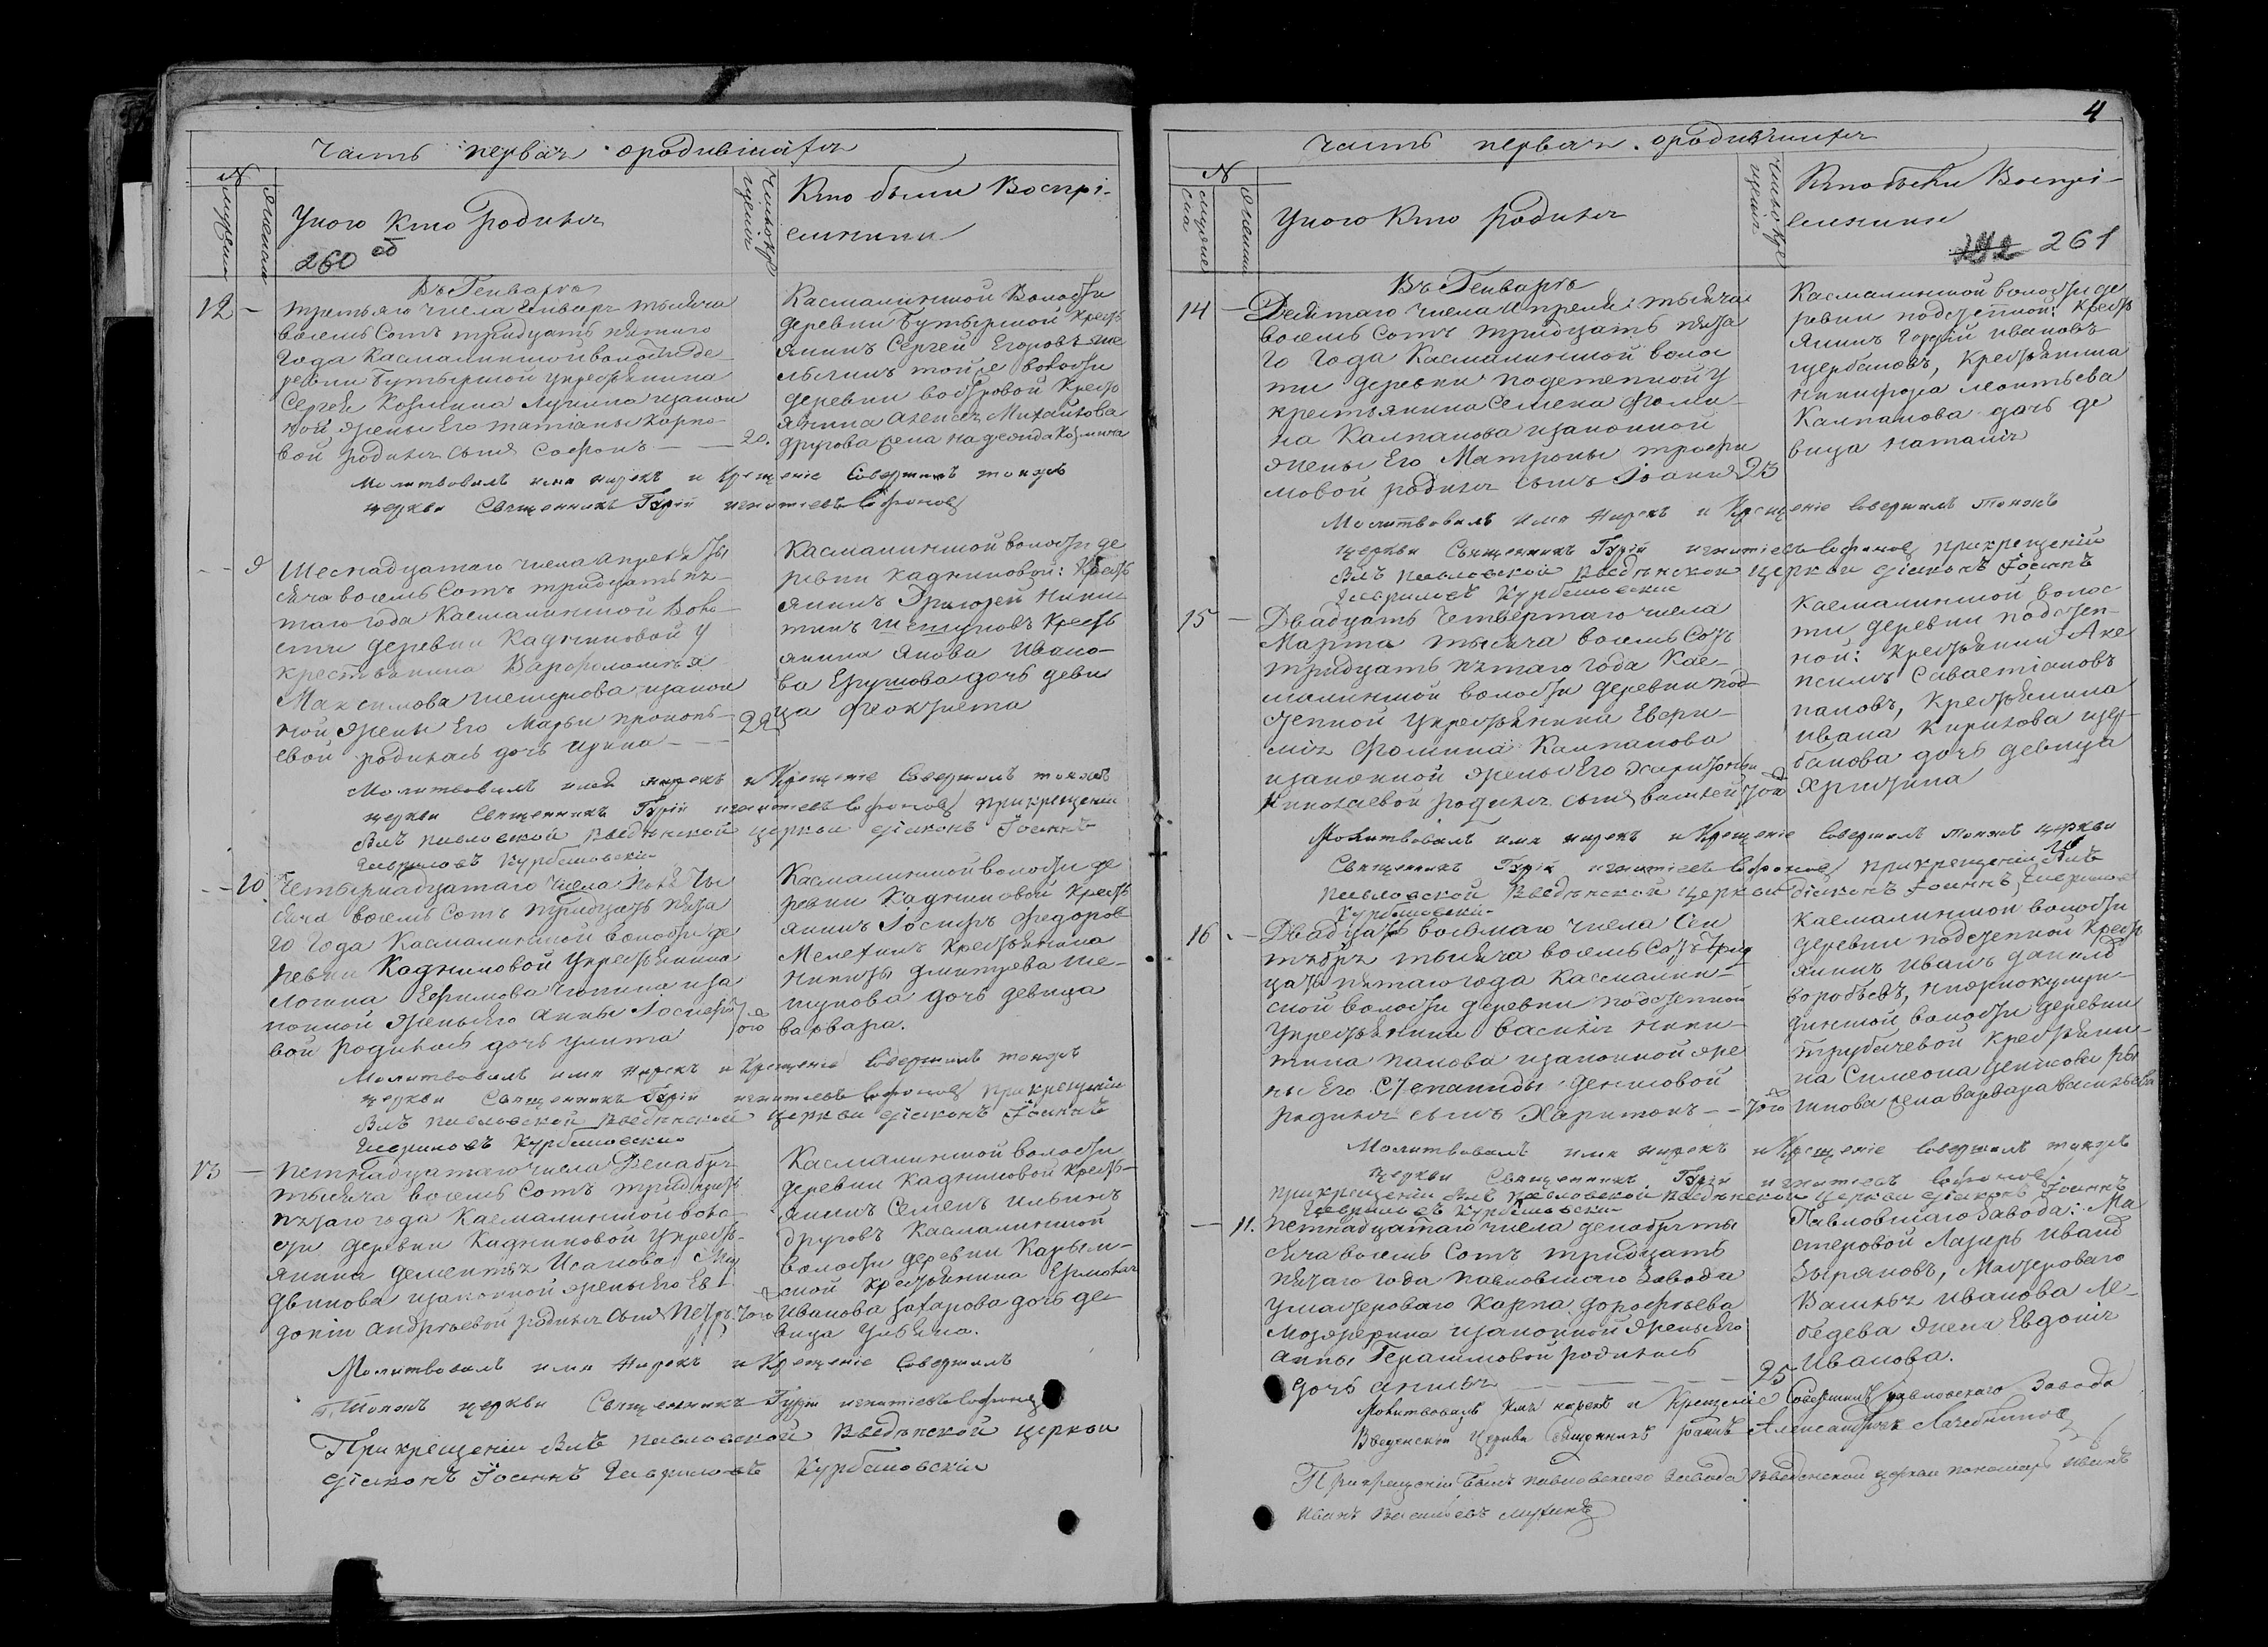 Часть первая о родившихся
№
Мужеска
Женска
У кого Кто Родился
260 об
Число Кре
щенія
Кто были Воспрі-
емники
Въ Генваре
12 —
Третьяго числа Генваря тысяча
восемь Сотъ тридцать пятаго
Года Касмалинской волости де-
ревни Бутырской у крестьянина
Сергея Козмина Лучина изакон
ной жены Его Татианы Карпо-
вой родился сынъ Софронъ — — 20.
Касмалинской Волости
деревни Бутырской Кресть
янинъ Сергей Егоровъ
тойже волости
деревни Кресть
янина Алексея Михайлова
другова жена надежда Козмина
Молитвовалъ имя нарекъ и Крещеніе Совершилъ тояже
церкви Священникъ Гурій игнатіевъ Софоновъ
— — 9
Шеснадцатаго числа Апреля ты
сяча восемь Сотъ тридцать пя-
таго года Касмалинской Воло-
сти деревни Кадниковой У
крестьянина Варфоломея
Максимова Шепунова изакон
ной жены Его Марьи прокопь-
евой родилась дочь Ирина — — 22
Касмалинской волости де
ревни Кадниковой: Кресть
янинъ Григорей Ники
тинъ Шепуновъ Кресть
янина Якова Ивано-
ва Ершова дочь деви
ца Феоктиста
Молитвовалъ имя нарекъ и Крещеніе Совершилъ тояже
церкви Священникъ Гурій игнатіевъ Софоновъ при крещеніи
былъ павловской Введенской церкви діаконъ Іоаннъ
Гавриловъ Курбановскій
— — 10.
Четырнадцатаго числа Ты
сяча восемь Сотъ тридцать пята
го Года Касмалинской волости де
ревни Кадниковой Укрестьянина
Логина Ефимова Чюпина иза
конной жены Его Анны Іосифо
вой родилась дочь улита
Касмалинской волости де
ревни Кадниковой Кресть
янинъ Іосифъ Федоровъ
Мелехинъ Крестьянина
Никиты Дмитрева Ше-
пунова дочь девица
варвара.
Молитвовалъ имя нарекъ и Крещеніе Совершилъ тояже
церкви Священникъ Гурій игнатіевъ Софоновъ при крещеніи
былъ павловской Введенской церкви діаконъ Іоаннъ
Гавриловъ Курбановскій
13 —
Петнадцатаго числа Декабря
тысяча восемь Сотъ тридцать
пятаго года Касмалинской воло-
сти деревни Кадниковой Укресть-
янина Дементья Исакова Мед
двинова изаконной жены Его Ев
докіи Андреевой родился Сынъ Петръ
Касмалинской волости
деревни Кадниковой Кресть-
янинъ Семенъ Ильинъ
друговъ Касмалинской
волости деревни
ской Крестьянина Ермолая
Иванова Захарова дочь де
вица Ульяна.
Молитвовалъ имя нарекъ и Крещеніе Совершилъ
Тояже церкви Священникъ Гурій игнатіевъ Софоновъ
При крещеніи былъ павловской Введенской церкви
діаконъ Іоаннъ Гавриловъ Курбановскій
4
Часть первая о родившихся
№
Женска
У кого Кто родился
Число Кре
щенія
Кто были Воспрі-
емники
261
Въ Генваре
14 —
Десятаго числа Апреля: тысяча
восемь Сотъ тридцать пята
го Года Касмалинской волос
ти деревни подстепной У
крестьянина Семена Фоми-
на Калпакова изаконной
жены Его Матроны трофи
мовой родился сынъ Іоаннъ 23
Касмалинской волости де
ревни подстепной: Кресть
янинъ Ивановъ
щербаковъ, Крестьянина
Никифора Леонтьева
Калпакова дочь де
вица Наталія
Молитвовалъ имя нарекъ и Крещеніе Совершилъ тояже
церкви Священникъ Гурій игнатіевъ Софоновъ при крещеніи
былъ павловской Введенской церкви діаконъ Іоаннъ
Гавриловъ Курбановскій
15 —
Двадцать Четвертаго числа
Марта тысяча восемь Сотъ
тридцать пятаго года Кас-
малинской волости деревни под
степной Укрестьянина Евфи-
мія Фомина Калпакова
изаконной жены Его
Николаевой родился сынъ василей
Касмалинской волос
ти деревни подстеп-
ной: Крестьянинъ
Савастіановъ
пановъ, Крестьянина
Ивана Кирилова щер-
бакова дочь девица
Христина
Молитвовалъ имя нарекъ и Крещеніе Совершилъ тояже церкви
Священникъ Гурій игнатіевъ Софоновъ при крещеніи былъ
павловской Введенской церкви діаконъ Іоаннъ Гавриловъ
Курбановскій
16 —
Двадцать восьмаго числа Сен
тября тысяча восемь Сотъ Трид
цать пятаго года Касмалин-
ской волости деревни подстепной
Укрестьянина василья Ники-
тина панова изаконной же
ны Его Степаниды Денисовой
родился сынъ Харитонъ — —
Касмалинской волости
деревни подстепной Кресть
янинъ Иванъ данилов
воробьевъ, нижнокулун-
динской волости деревни
трубачевой Крестьяни-
на Симеона
жена варвара васильева
Молитвовалъ имя нарекъ и Крещеніе Совершилъ тояже
церкви Священникъ Гурій игнатіевъ Софоновъ
при крещеніи былъ павловской Введенской церкви діаконъ Іоаннъ
Гавриловъ Курбановскій
— 11.
Петнадцатаго числа декабря ты
сяча восемь Сотъ тридцать
пятаго года павловскаго Завода
Умастероваго Карпа дорофеева
изаконной Жены Его
Анны Герасимовой родилась
дочь — — — 25
Павловскаго Завода: Ма
стеровой Лазарь Иванов
Зыряновъ, Мастероваго
Василья Иванова Ле-
бедева Жена Евдокія
Иванова.
Молитвовалъ Имя нарекъ и Крещеніе Совершилъ павловскаго Завода
Введенской Церкви Священникъ Іоаннъ Александровъ
При крещеніи былъ павловскаго завода Введенской церкви пономарь Иванъ
Иванъ Васильевъ